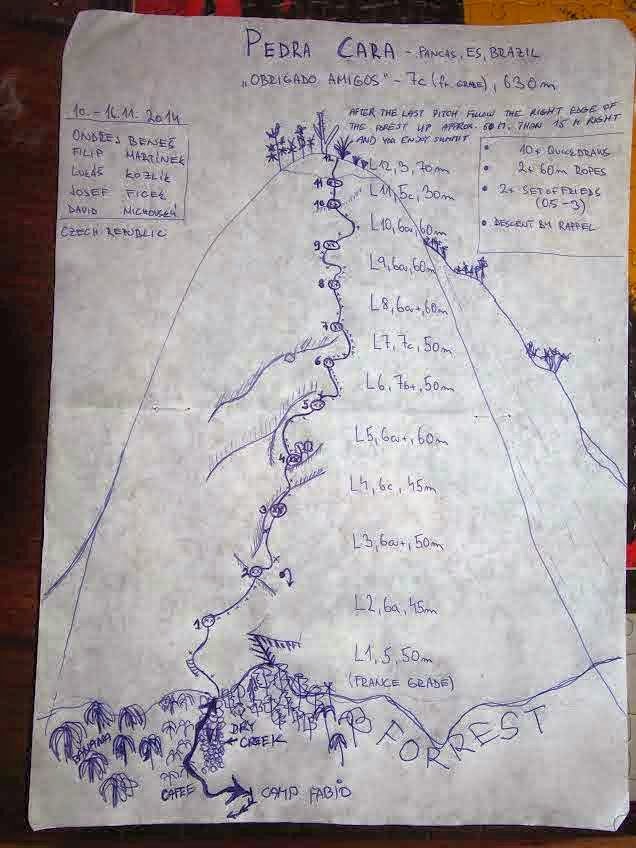 PEDRA CARA - PANCAS, ES, BRAZIL
„OBRIGADO AMIGOS" - 7c (fr. GRADE), 630m
10. - 16.11. 2014
ONDŘEJ BENEŠ
FILIP MARTÍNEK
LUKÁŠ KOZLÍK
JOSEF FICEK
DAVID
CZECH REPUBLIC
AFTER THE LAST PITCH FOLLOW THE RIGHT EDGE OF
THE FOREST UP APPROX. 60 M. THAN 15 M RIGHT
AND YOU ENJOY SUMMIT
• 10+ QUICKDRAWS
• 2x 60m ROPES
• 2x SET OF FRIEDS
(05-3)
• DESCENT BY RAPPEL
L12, 3, 70m
L11, 5c, 30m
L10, 6a, 60m
L9, 6a, 60m
L8, 6a+, 60m
L7, 7c, 50m
L6, 7b+, 50m
L5, 6a+, 60m
L4, 6c, 45m
L3, 6a+, 50m
L2, 6a, 45m
L1, 5, 50m
(FRANCE GRADE)
12
11
10
9
8
7
6
5
4
3
2
1
FORREST
BANANA
DRY
CREEK
CAFEE
CAMP FABIO